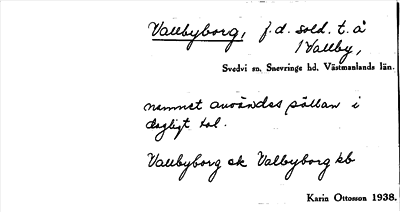 Vallbyborg, f.d. sold. t. å
1 Vallby,
Svedvi sn, Snevringe hd, Västmanlands län.
namnet användes sällan i
dagligt tal.
Vallbyborg ek Valbyborg kb
Karin Ottosson 1938.